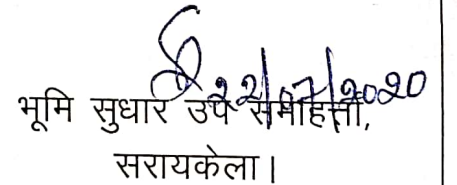 22/07/2020
भूमि सुधार उप समाहर्त्ता,
सरायकेला।